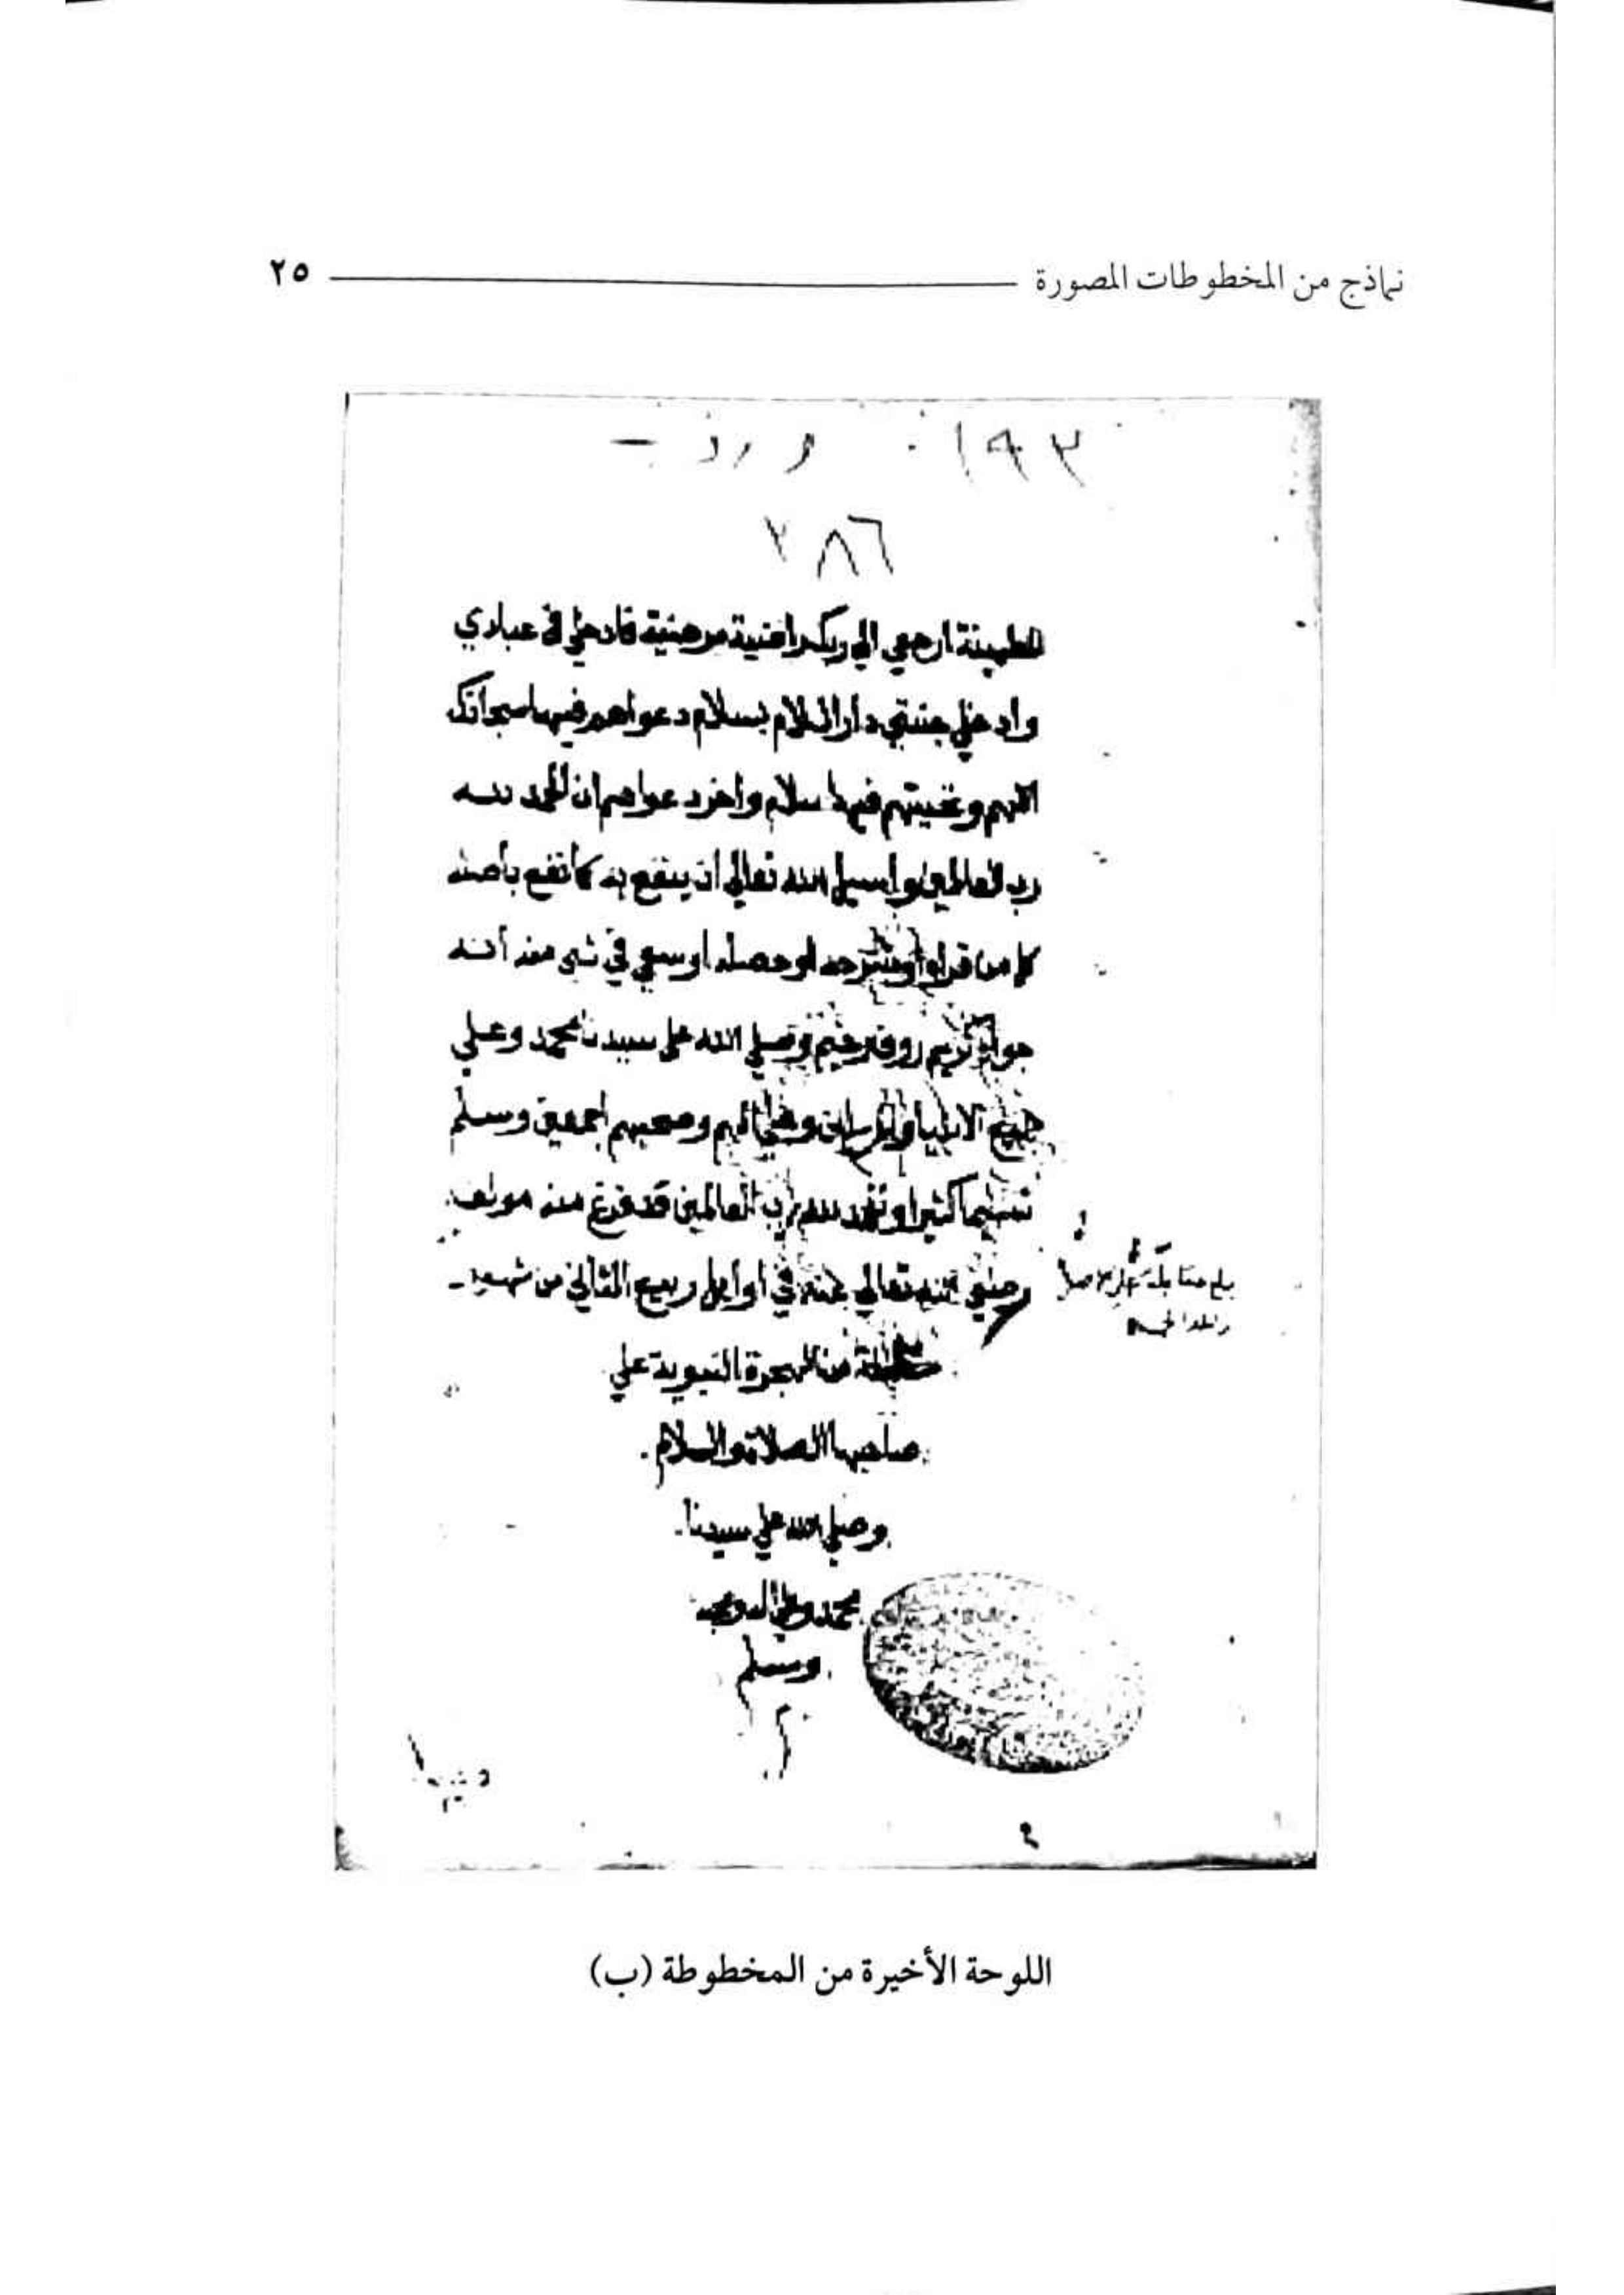 نماذج من المخطوطات المصورة ٢٥
١٩٣
٣٨٦
المطمينة ارجعي الي ربك راضية مرضية فادخلي في عبادي
وادخلي جنتي دار السلام بسلام دعواهم فيها سبحانك
اللهم وتحيتهم فيها سلام واخر دعواهم ان الحمد لله
رب العالمين واسيل الله تعالي ان ينفع به كما نفع بأصله
كل من قراه أو شرحه او حصله او سعي في شي منه أنه
جواد كريم روف رحيم وصلي الله علي سيدنا محمد وعلي
جميع الانبيا والمرسلين وعلي الهم وصحبهم اجمعين وسلم
تسليما كثيرا والحمد لله رب العالمين قد فرغ منه مولفه
رضي الله تعالي عنه في اوايل ربيع الثاني من شهور
سنة من الهجرة النبوية علي
صاحبها الصلاة والسلام
وصلي الله علي سيدنا
محمد وعلي اله وصحبه
وسلم
بلغ مقابلة علي اصل
ولله الحمد
اللوحة الأخيرة من المخطوطة (ب)